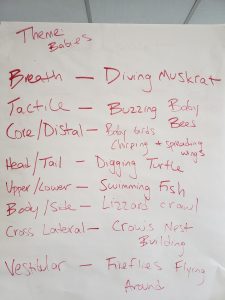 Theme
Babies
Breath — Diving Muskrat
Tactile — Buzzing Baby
Bees
Core/Distal — Baby birds
Chirping + spreading
wings
Head/Tail — Digging Turtle
Upper/Lower — Swimming Fish
Body/Side — Lizzard crawl
Cross Lateral — Crow's Nest
Building
Vestibular — Fireflies Flying
Around